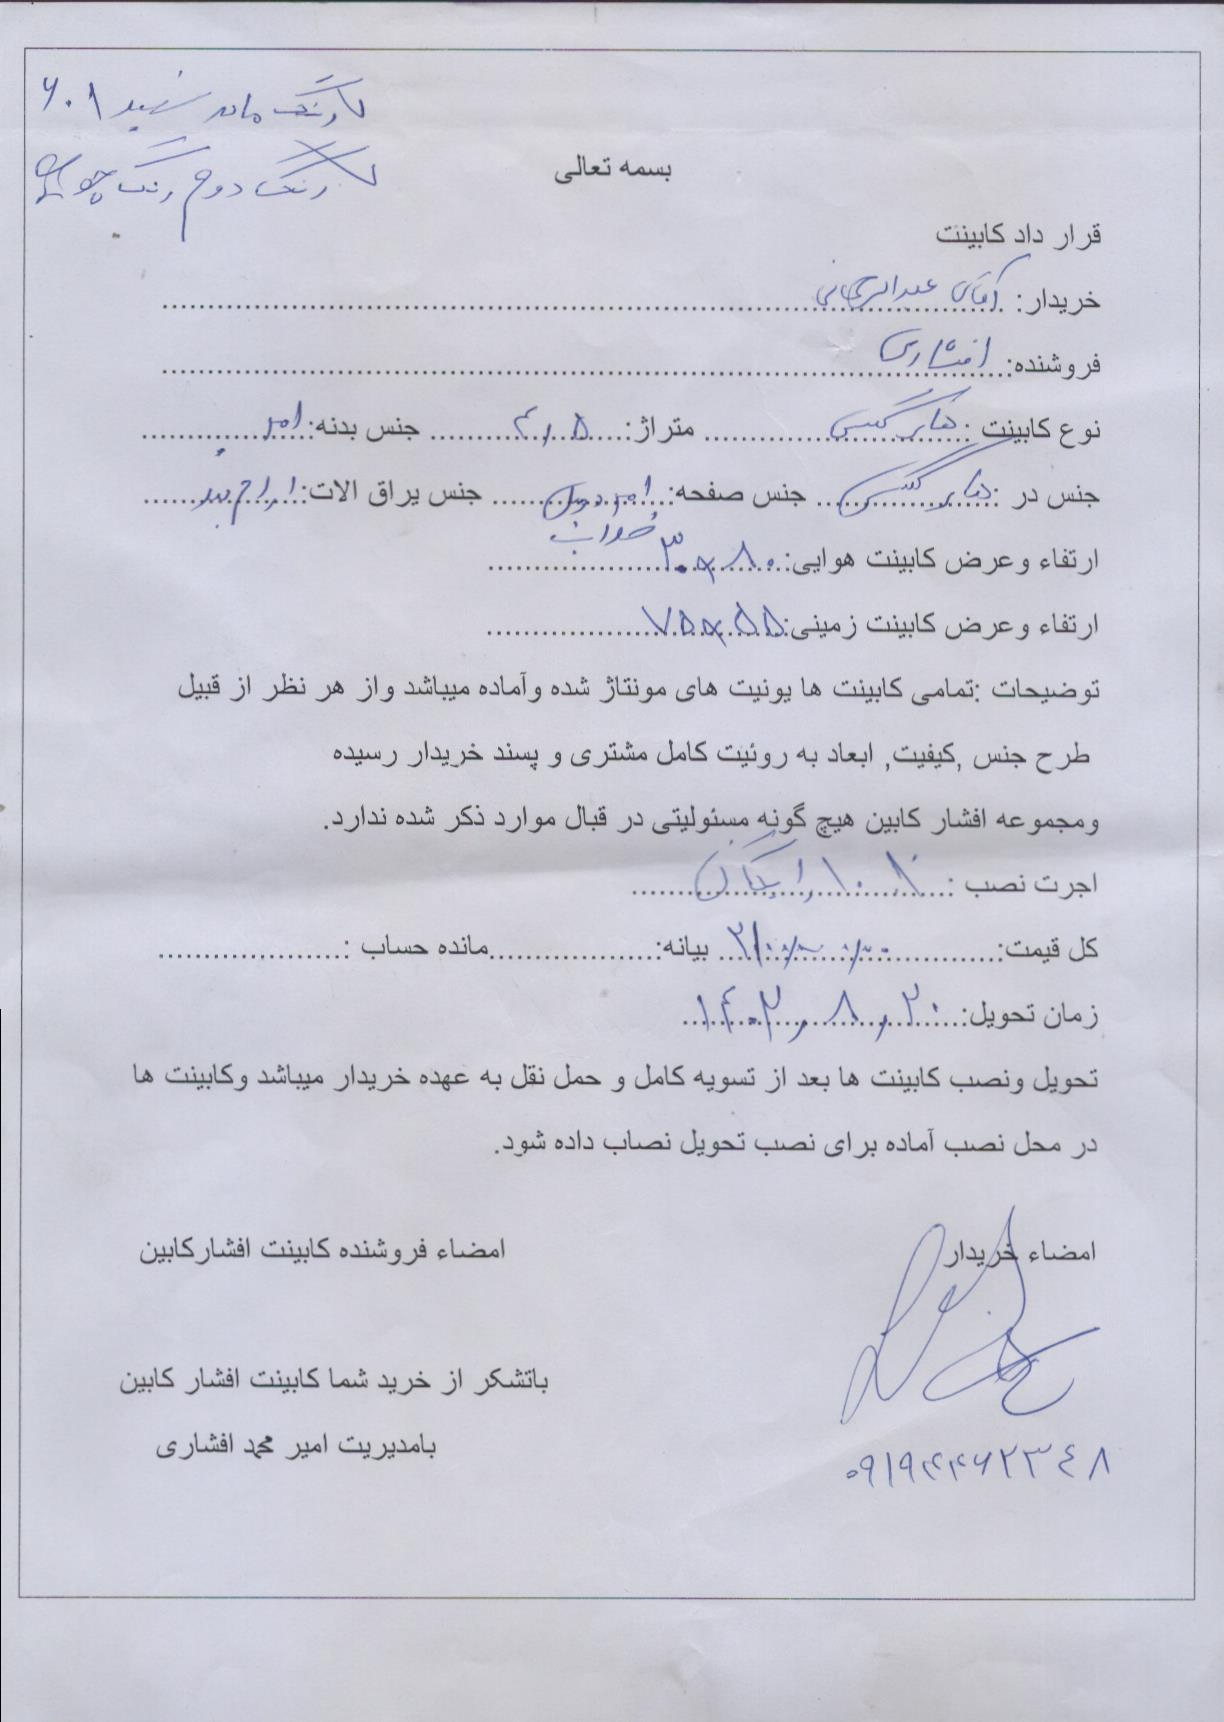 رنگ مات سفید ۶۰۱
رنگ دوم رنگ چوب
بسمه تعالی
قرار داد کابینت
خریدار: آقای
فروشنده: افشاری
نوع کابینت : هایگلس متراژ: ۴,۵ جنس بدنه:
جنس در : هایگلس جنس صفحه: جنس یراق الات:
ارتفاء وعرض کابینت هوایی: ۸۰ ۳۰
ارتفاء وعرض کابینت زمینی: ۵۵ ۷۵
توضیحات :تمامی کابینت ها یونیت های مونتاژ شده وآماده میباشد واز هر نظر از قبیل
طرح جنس ,کیفیت, ابعاد به روئیت کامل مشتری و پسند خریدار رسیده
ومجموعه افشار کابین هیچ گونه مسئولیتی در قبال موارد ذکر شده ندارد.
اجرت نصب : رایگان
کل قیمت: بیانه: مانده حساب :
زمان تحویل: ۱۴۰۲,۸,۲۰
تحویل ونصب کابینت ها بعد از تسویه کامل و حمل نقل به عهده خریدار میباشد وکابینت ها
در محل نصب آماده برای نصب تحویل نصاب داده شود.
امضاء خریدار امضاء فروشنده کابینت افشارکابین
باتشکر از خرید شما کابینت افشار کابین
بامدیریت امیر محمد افشاری
۰۹۱۹۴۴۶۲۳۴۸